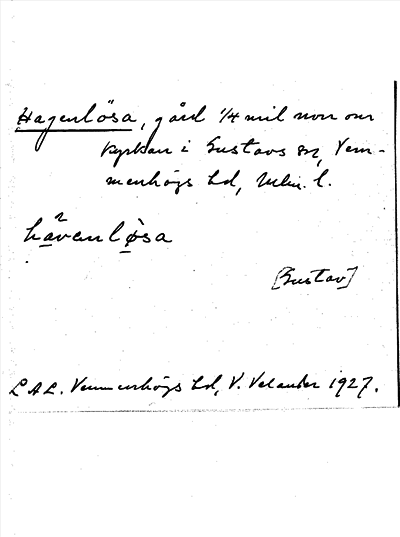 Hagenlösa, gård 1/4 mil norr om
kyrkan i Gustavs sn, Vem-
menhögs hd, Mlm. l.
hävenlösa
[Gustav]
LAL. Vemmenhögs hd, V. Velander 1927.